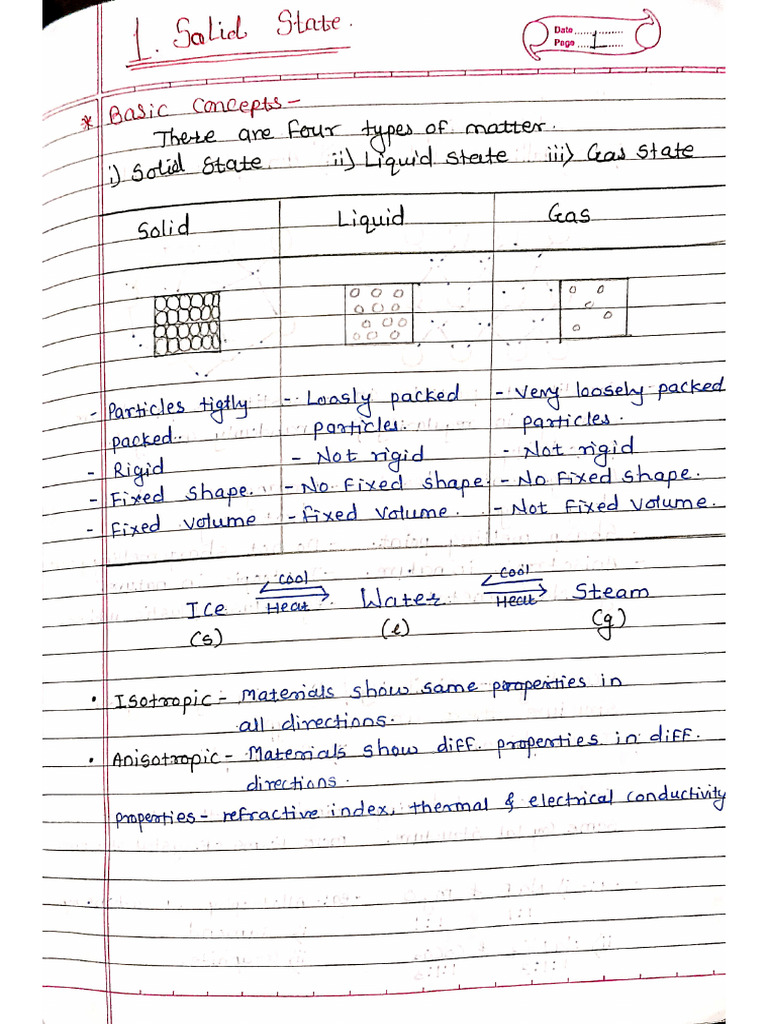 1. Solid State.
Date ..................
Page ....1..........
* Basic Concepts-
There are four types of matter.
i) Solid State ii) Liquid state iii) Gas state
Solid Liquid Gas
- Particles tigtly - Loasly packed - Very loosely packed
packed. particles. particles.
- Rigid - Not rigid - Not rigid
- Fixed shape. - No fixed shape. - No fixed shape.
- Fixed volume - fixed volume. - Not fixed volume.
Cool Cool
Ice Heat Water Heat Steam
(s) (l) (g)
• Isotropic - Materials show same properties in
all directions.
• Anisotropic - Materials show diff. properties in diff.
directions.
properties - refractive index, thermal & electrical conductivity